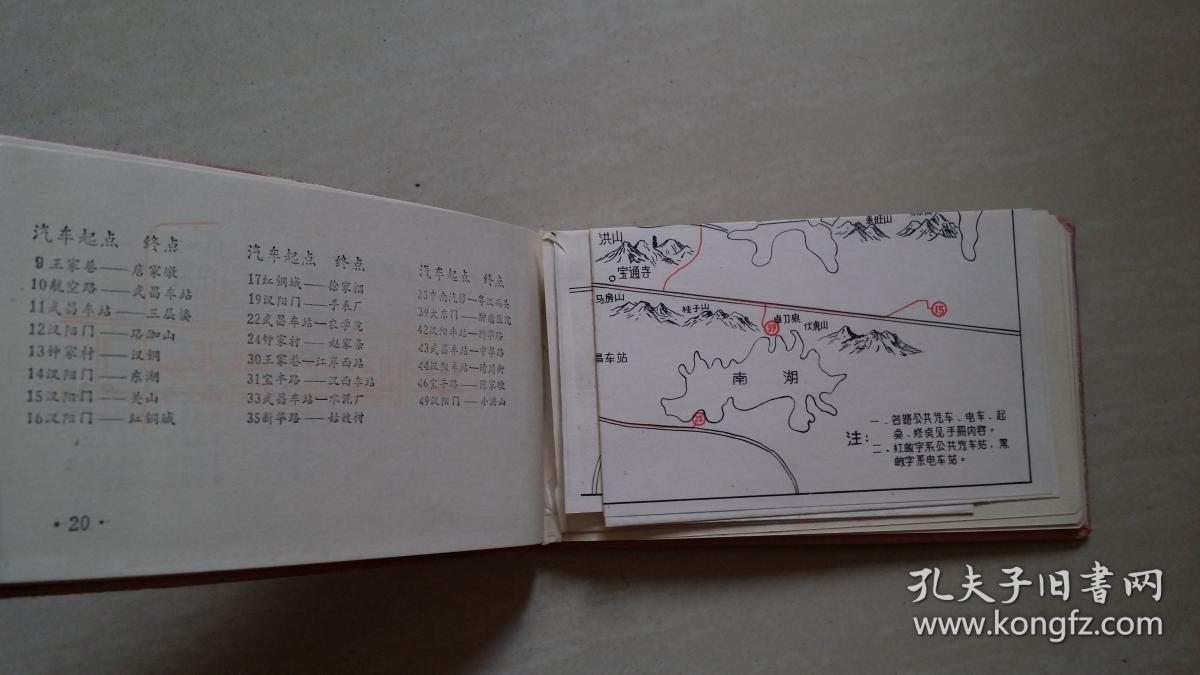 汽车起点 终点
9王家巷——唐家墩
10航空路——武昌车站
11武昌车站——三层楼
12汉阳门——珞珈山
13钟家村——汉钢
14汉阳门——东湖
15汉阳门——吴山
16汉阳门——红钢城
汽车起点 终点
17红钢城——徐家棚
19汉阳门——手表厂
22武昌车站—农学院
24钟家村——赵家条
30王家巷—江岸西站
31宝丰路——汉西车站
33武昌车站—水泥厂
35新华路——姑嫂树
汽车起点 终点
38中南汽修—粤汉码头
39大东门—肿瘤医院
42汉阳车站—新华路
43武昌车站—中华路
44汉阳车站—晴川街
46宝丰路—陈家墩
49汉阳门—小洪山
·20·
洪山
宝通寺
马房山
桂子山
卓刀泉
伏虎山
39
15
昌车站
南 湖
注：
一、各路公共汽车、电车、起
点、终点见手册内容。
二、红画字系公共汽车站，黑
画字系电车站。
孔夫子旧书网
www.kongfz.com